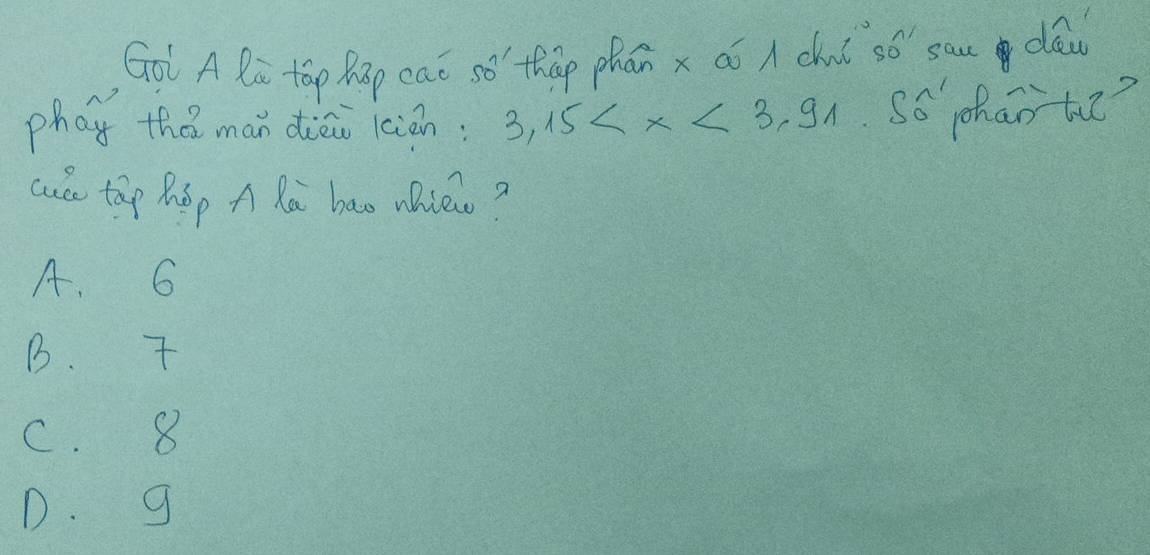 Gọi A là tập hợp các số thập phân x có 1 chữ số sau dấu
phẩy thoả mãn điều kiện : 3,15 < x < 3,91. Số phần tử
của tập hợp A là bao nhiêu ?
A. 6
B. 7
C. 8
D. 9